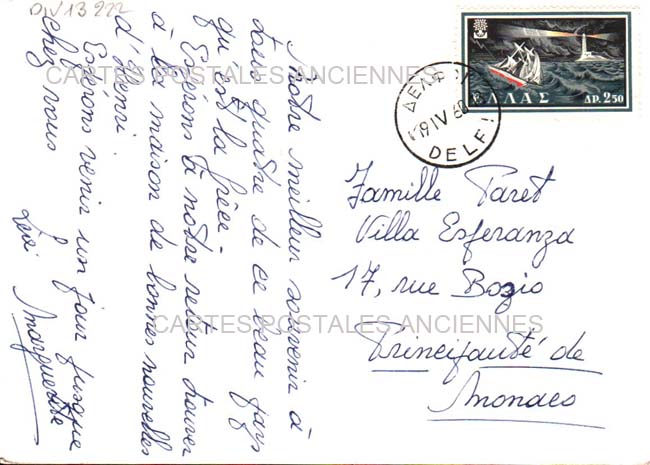 DIV13 222
Notre meilleur souvenir à
tous quatre de ce beau pays
qu'est la Grèce.
Espérons à notre retour trouver
à la maison de bonnes nouvelles
d'Henri
Espérons venir un jour jusque
chez vous
Marguerite
ΔΕΛΦΟΙ
19 IV 60
DELFI
ΕΛΛΑΣ ΔΡ. 2.50
Famille Paret
Villa Esperanza
17, rue Bosio
Principauté de
Monaco
CARTES POSTALES ANCIENNES
CARTES POSTALES ANCIENNES